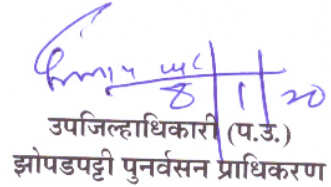 8/1/20
उपजिल्हाधिकारी (प.उ.)
झोपडपट्टी पुनर्वसन प्राधिकरण